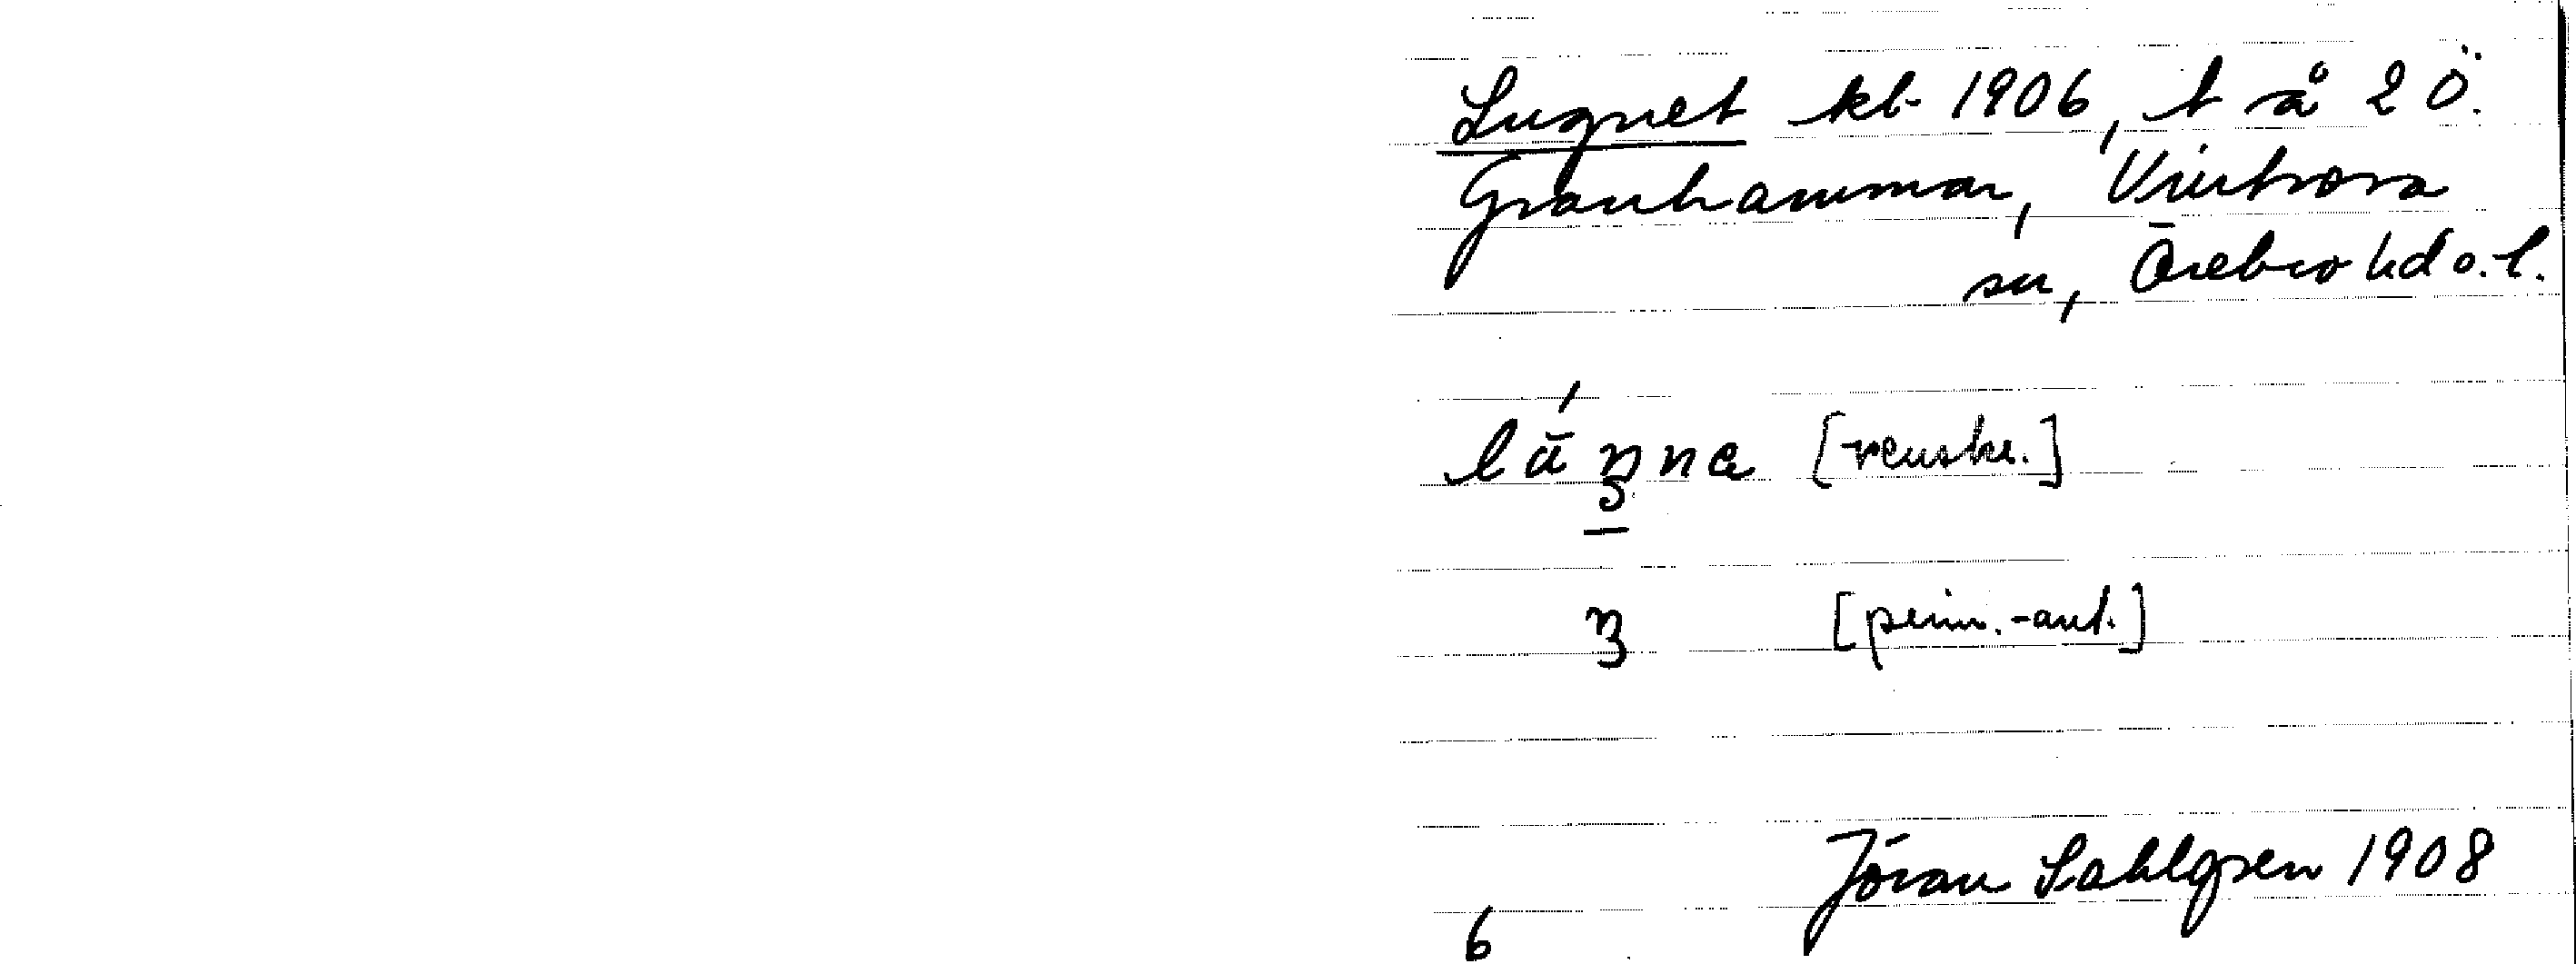 Lugnet kb 1906, t å 2 Ö.
Granhammar, Vintrosa
sn, Örebro hd o. l.
lŭ́ŋna [renskr.]
ŋ [prim.-ant.]
Jöran Sahlgren 1908
6